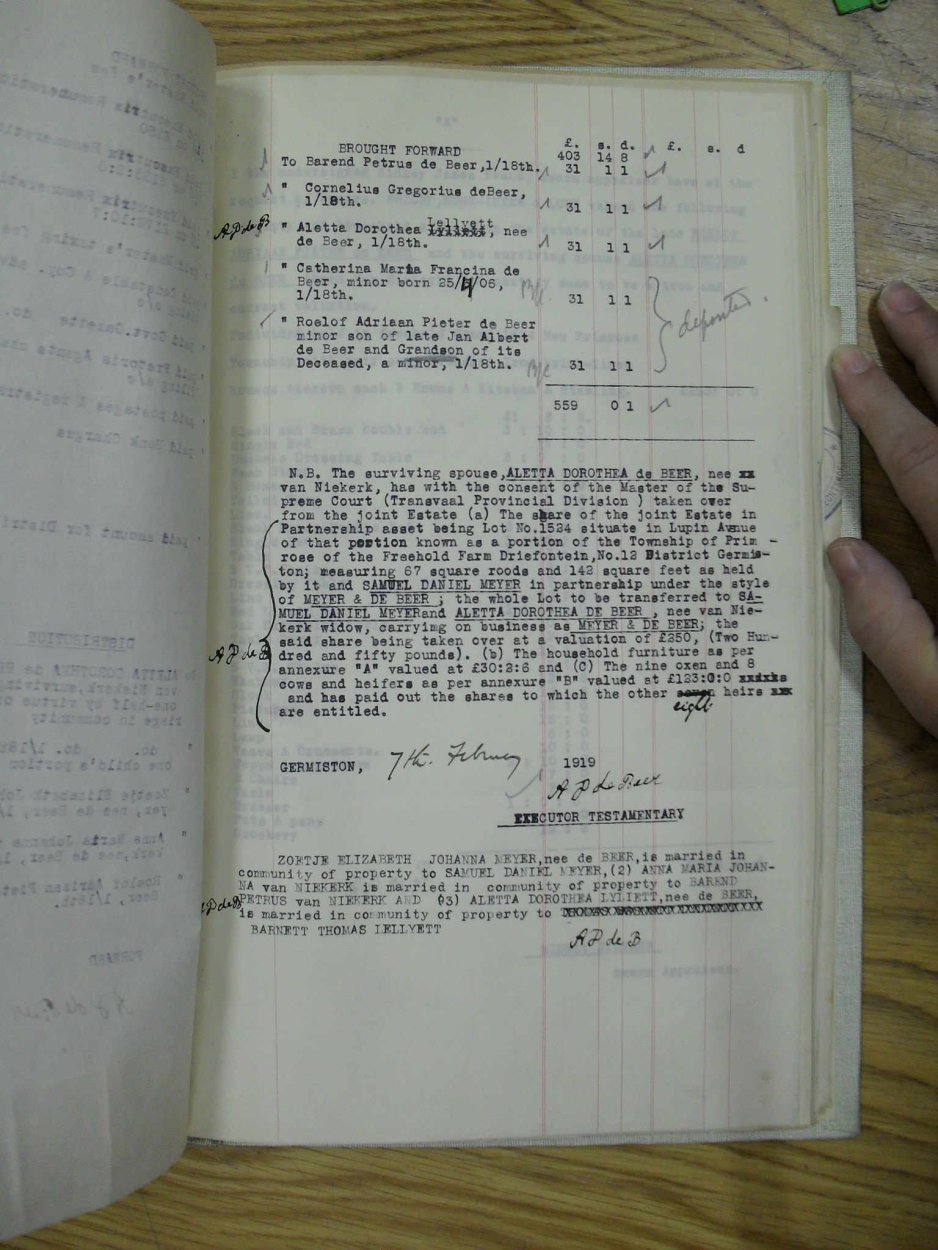 £. s. d. £. s. d
BROUGHT FORWARD 403 14 8
To Barend Petrus de Beer,1/18th. 31 1 1
" Cornelius Gregorius deBeer,
1/18th. 31 1 1
A P de B
Lellyett
" Aletta Dorothea xxxxxxx, nee
de Beer, 1/18th. 31 1 1
" Catherina Maria Francina de
Beer, minor born 25/4/06,
1/18th. 31 1 1
deposited.
" Roelof Adriaan Pieter de Beer
minor son of late Jan Albert
de Beer and Grandson of its
Deceased, a minor, 1/18th. 31 1 1
559 0 1
N.B. The surviving spouse,ALETTA DOROTHEA de BEER, nee xx
van Niekerk, has with the consent of the Master of the Su-
preme Court (Transvaal Provincial Division ) taken over
from the joint Estate (a) The share of the joint Estate in
Partnership asset being Lot No.1524 situate in Lupin Avnue
of that portion known as a portion of the Township of Prim -
rose of the Freehold Farm Driefontein,No.12 District Germis-
ton; measuring 67 square roods and 142 square feet as held
by it and SAMUEL DANIEL MEYER in partnership under the style
of MEYER & DE BEER ; the whole Lot to be transferred to SA-
MUEL DANIEL MEYERand ALETTA DOROTHEA DE BEER , nee van Nie-
kerk widow, carrying on business as MEYER & DE BEER; the
said share being taken over at a valuation of £250, (Two Hun-
A P de B
dred and fifty pounds). (b) The household furniture as per
annexure "A" valued at £30:2:6 and (C) The nine oxen and 8
cows and heifers as per annexure "B" valued at £123:0:0 xxixxs
and has paid out the shares to which the other seven heirs xxx
eight
are entitled.
GERMISTON, 7th. February 1919
A P de Beer
EXECUTOR TESTAMENTARY
ZOETJE ELIZABETH JOHANNA MEYER,nee de BEER,is married in
community of property to SAMUEL DANIEL MEYER,(2) ANNA MARIA JOHAN-
NA van NIEKERK is married in community of property to BAREND
PETRUS van NIEKERK AND (3) ALETTA DOROTHEA LYLIETT,nee de BEER,
A P de B
is married in community of property to
BARNETT THOMAS LELLYETT
A P de B